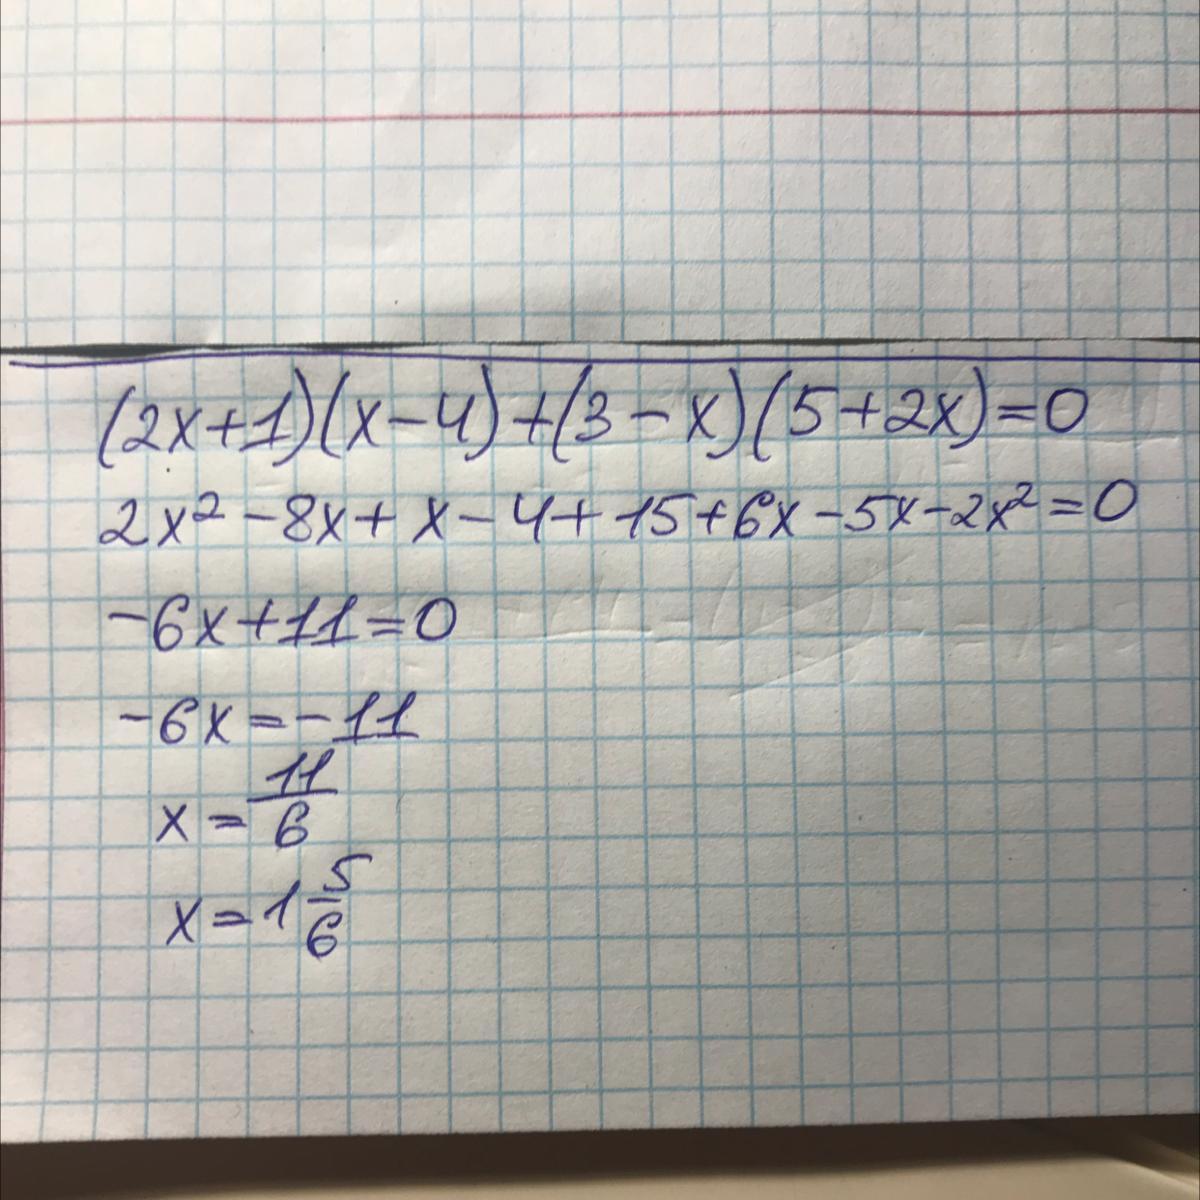 (2x+1)(x-4)+(3-x)(5+2x)=0
2x²-8x+x-4+15+6x-5x-2x²=0
-6x+11=0
-6x=-11
x=11/6
x=1 5/6